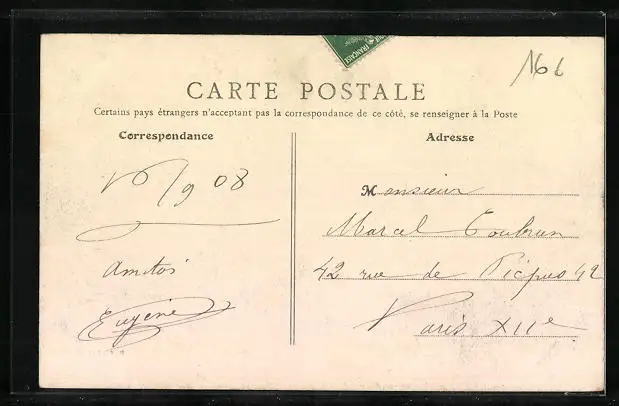 166
CARTE POSTALE
Certains pays étrangers n'acceptant pas la correspondance de ce côté, se renseigner à la Poste
Correspondance
/9 08
Amitiés
Eugène
Adresse
Monsieur
Marcel
42 rue de Picpus 42
Paris XIIe